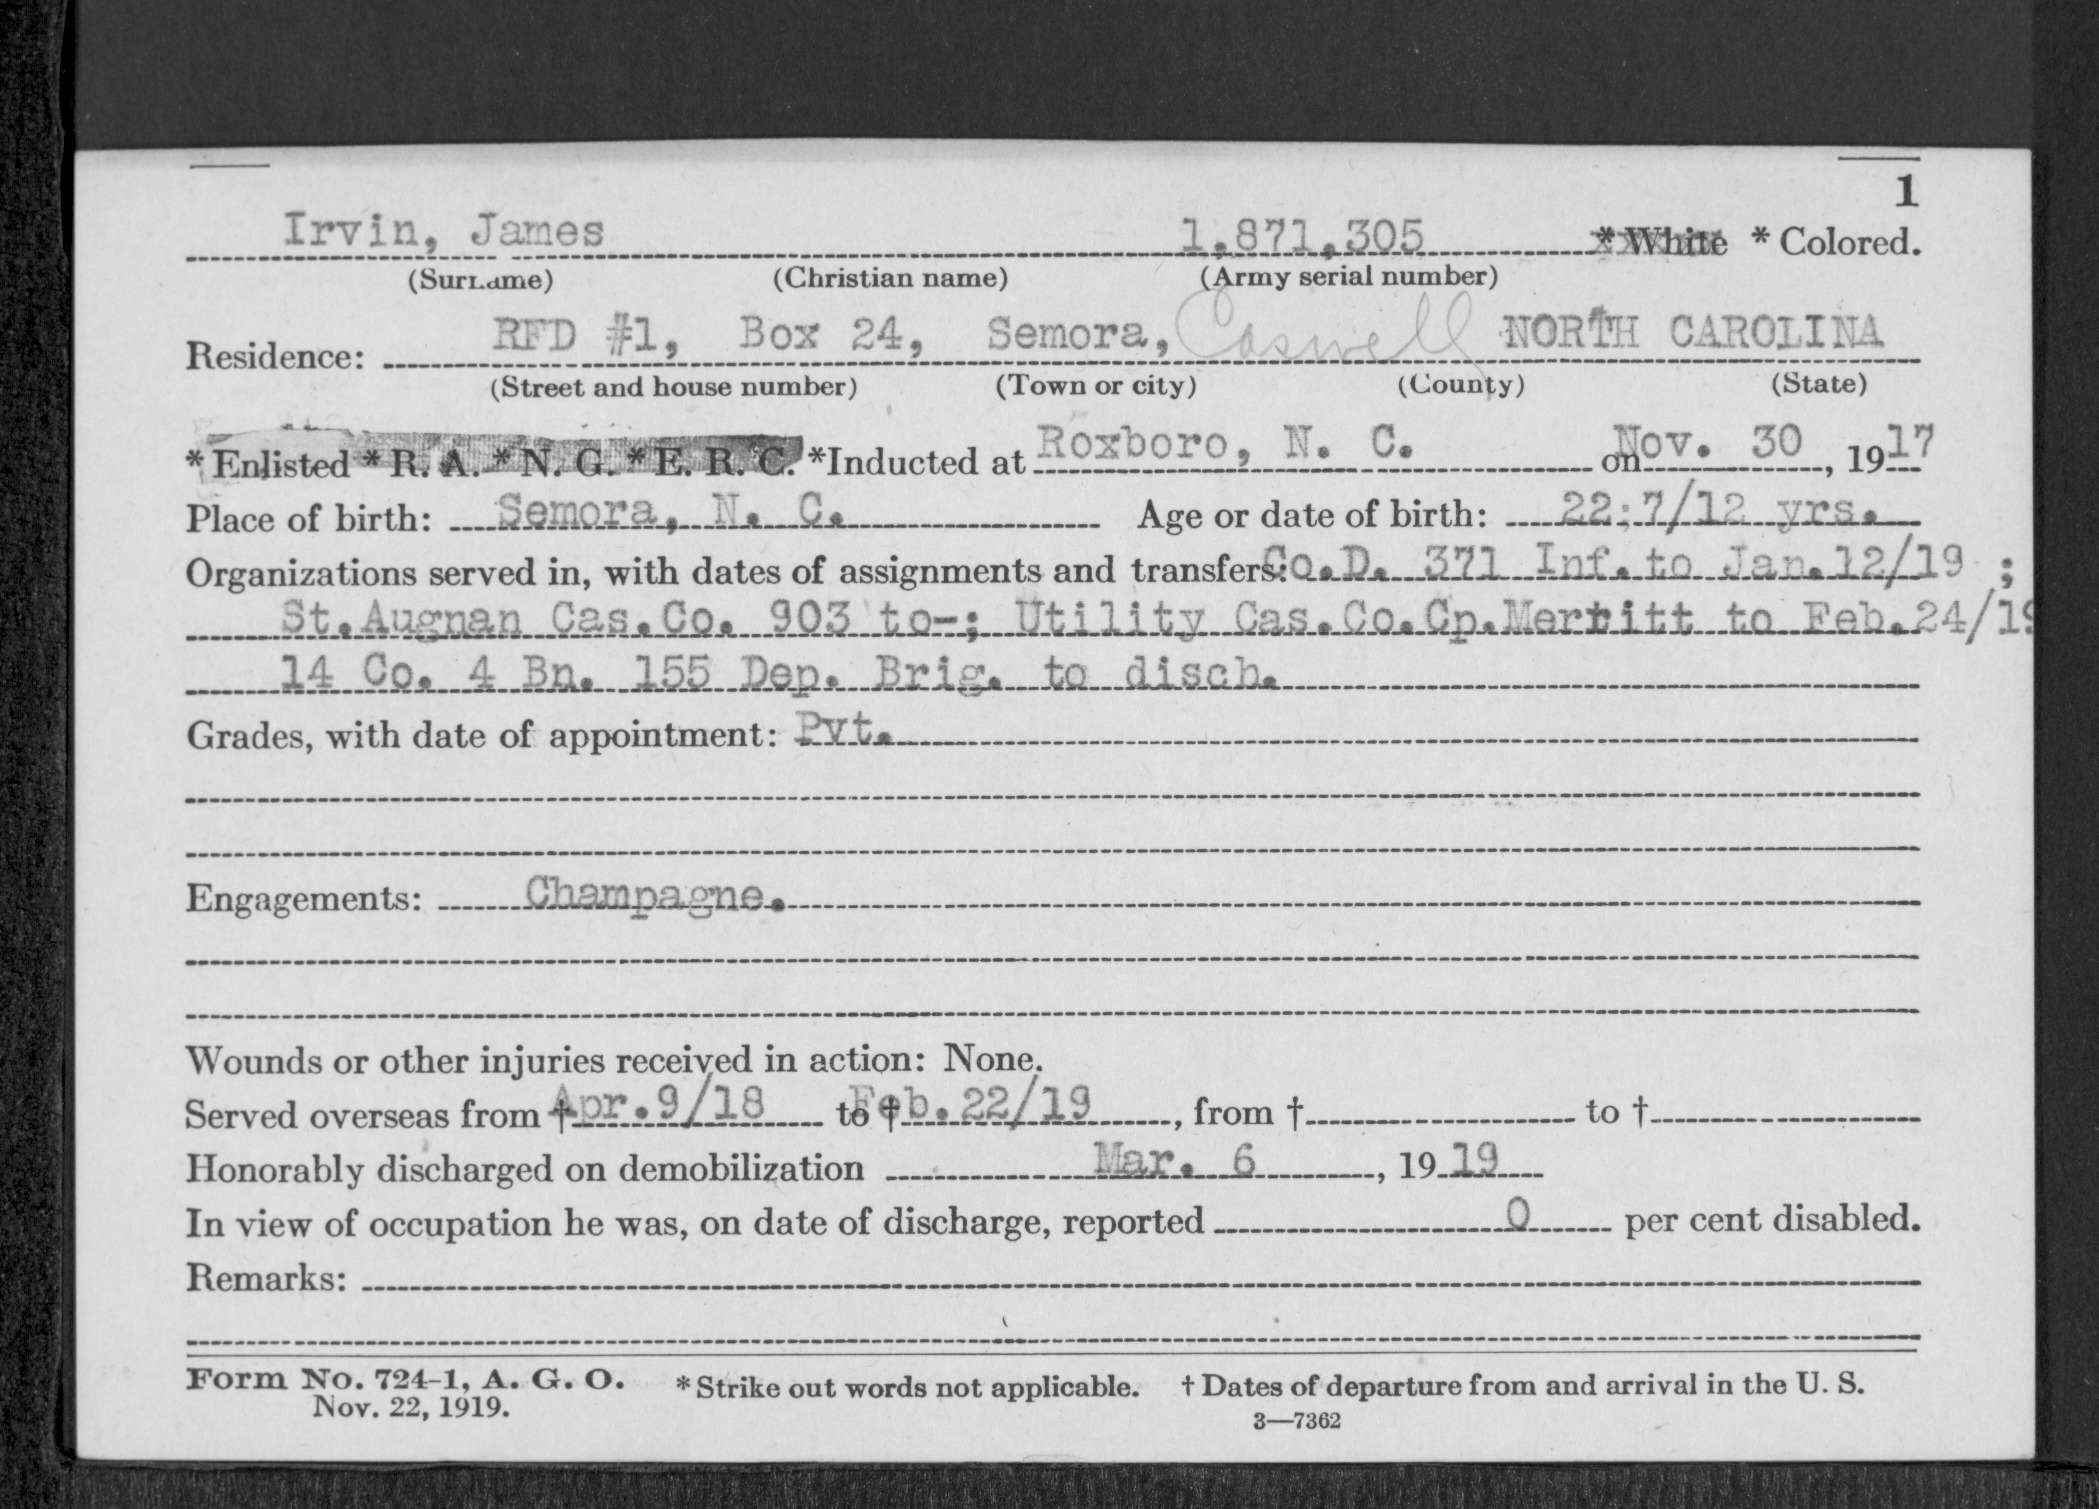 1
Irvin, James 1,871,305 * White * Colored.
(Surname) (Christian name) (Army serial number)
Residence: RFD #1, Box 24, Semora, Caswell NORTH CAROLINA
(Street and house number) (Town or city) (County) (State)
* Enlisted * R. A. * N. G. * E. R. C. *Inducted at Roxboro, N. C. on Nov. 30, 1917
Place of birth: Semora, N. C. Age or date of birth: 22:7/12 yrs.
Organizations served in, with dates of assignments and transfers: Co.D. 371 Inf. to Jan.12/19 ;
St.Augnan Cas.Co. 903 to-; Utility Cas.Co.Cp.Merritt to Feb.24/19
14 Co. 4 Bn. 155 Dep. Brig. to disch.
Grades, with date of appointment: Pvt.
Engagements: Champagne.
Wounds or other injuries received in action: None.
Served overseas from † Apr.9/18 to † Feb.22/19, from † to †
Honorably discharged on demobilization Mar. 6, 19 19
In view of occupation he was, on date of discharge, reported 0 per cent disabled.
Remarks:
Form No. 724-1, A. G. O. * Strike out words not applicable. † Dates of departure from and arrival in the U. S.
Nov. 22, 1919. 3—7362